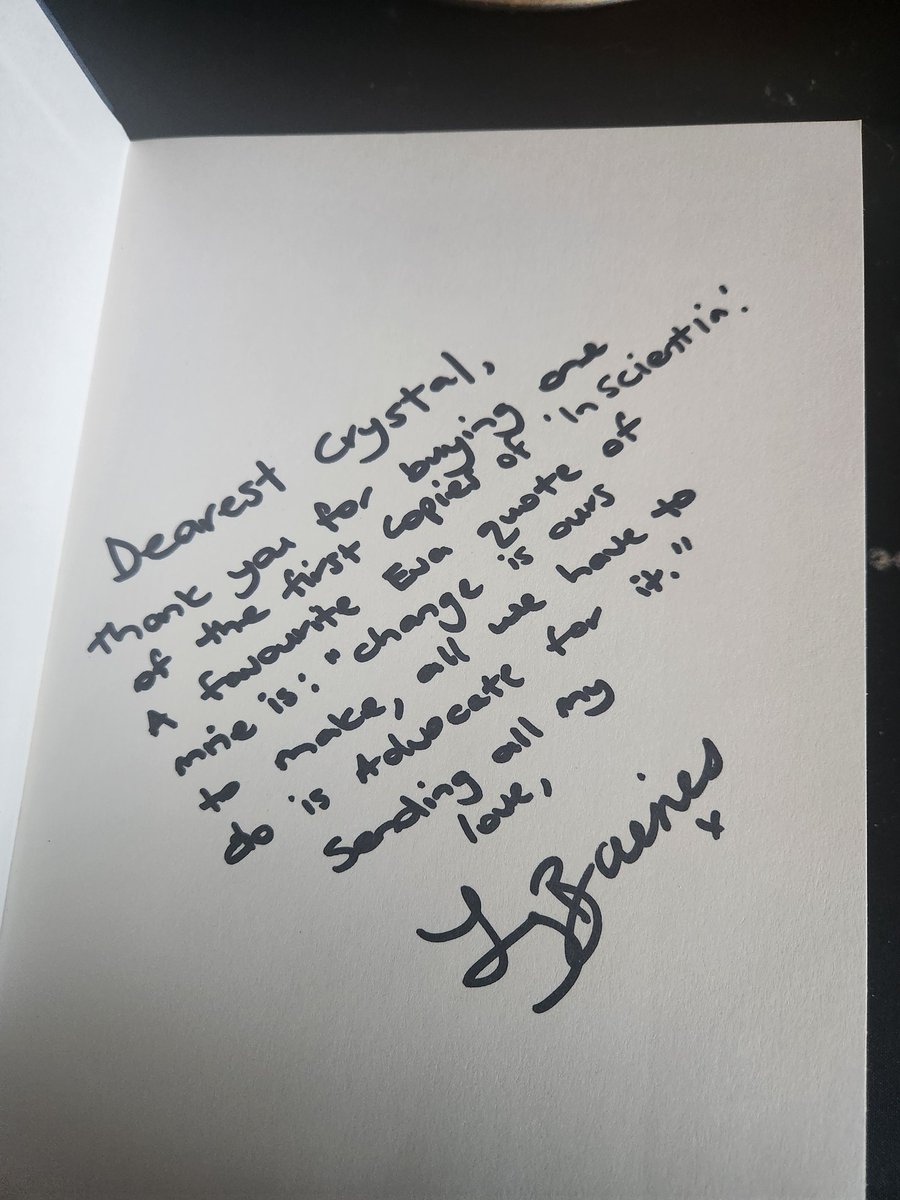 Dearest Crystal,
Thank you for buying one
of the first copies of 'In Scientia'.
A favourite Eva quote of
mine is: "change is ours
to make, all we have to
do is Advocate for it."
Sending all my
love,
Baines
x